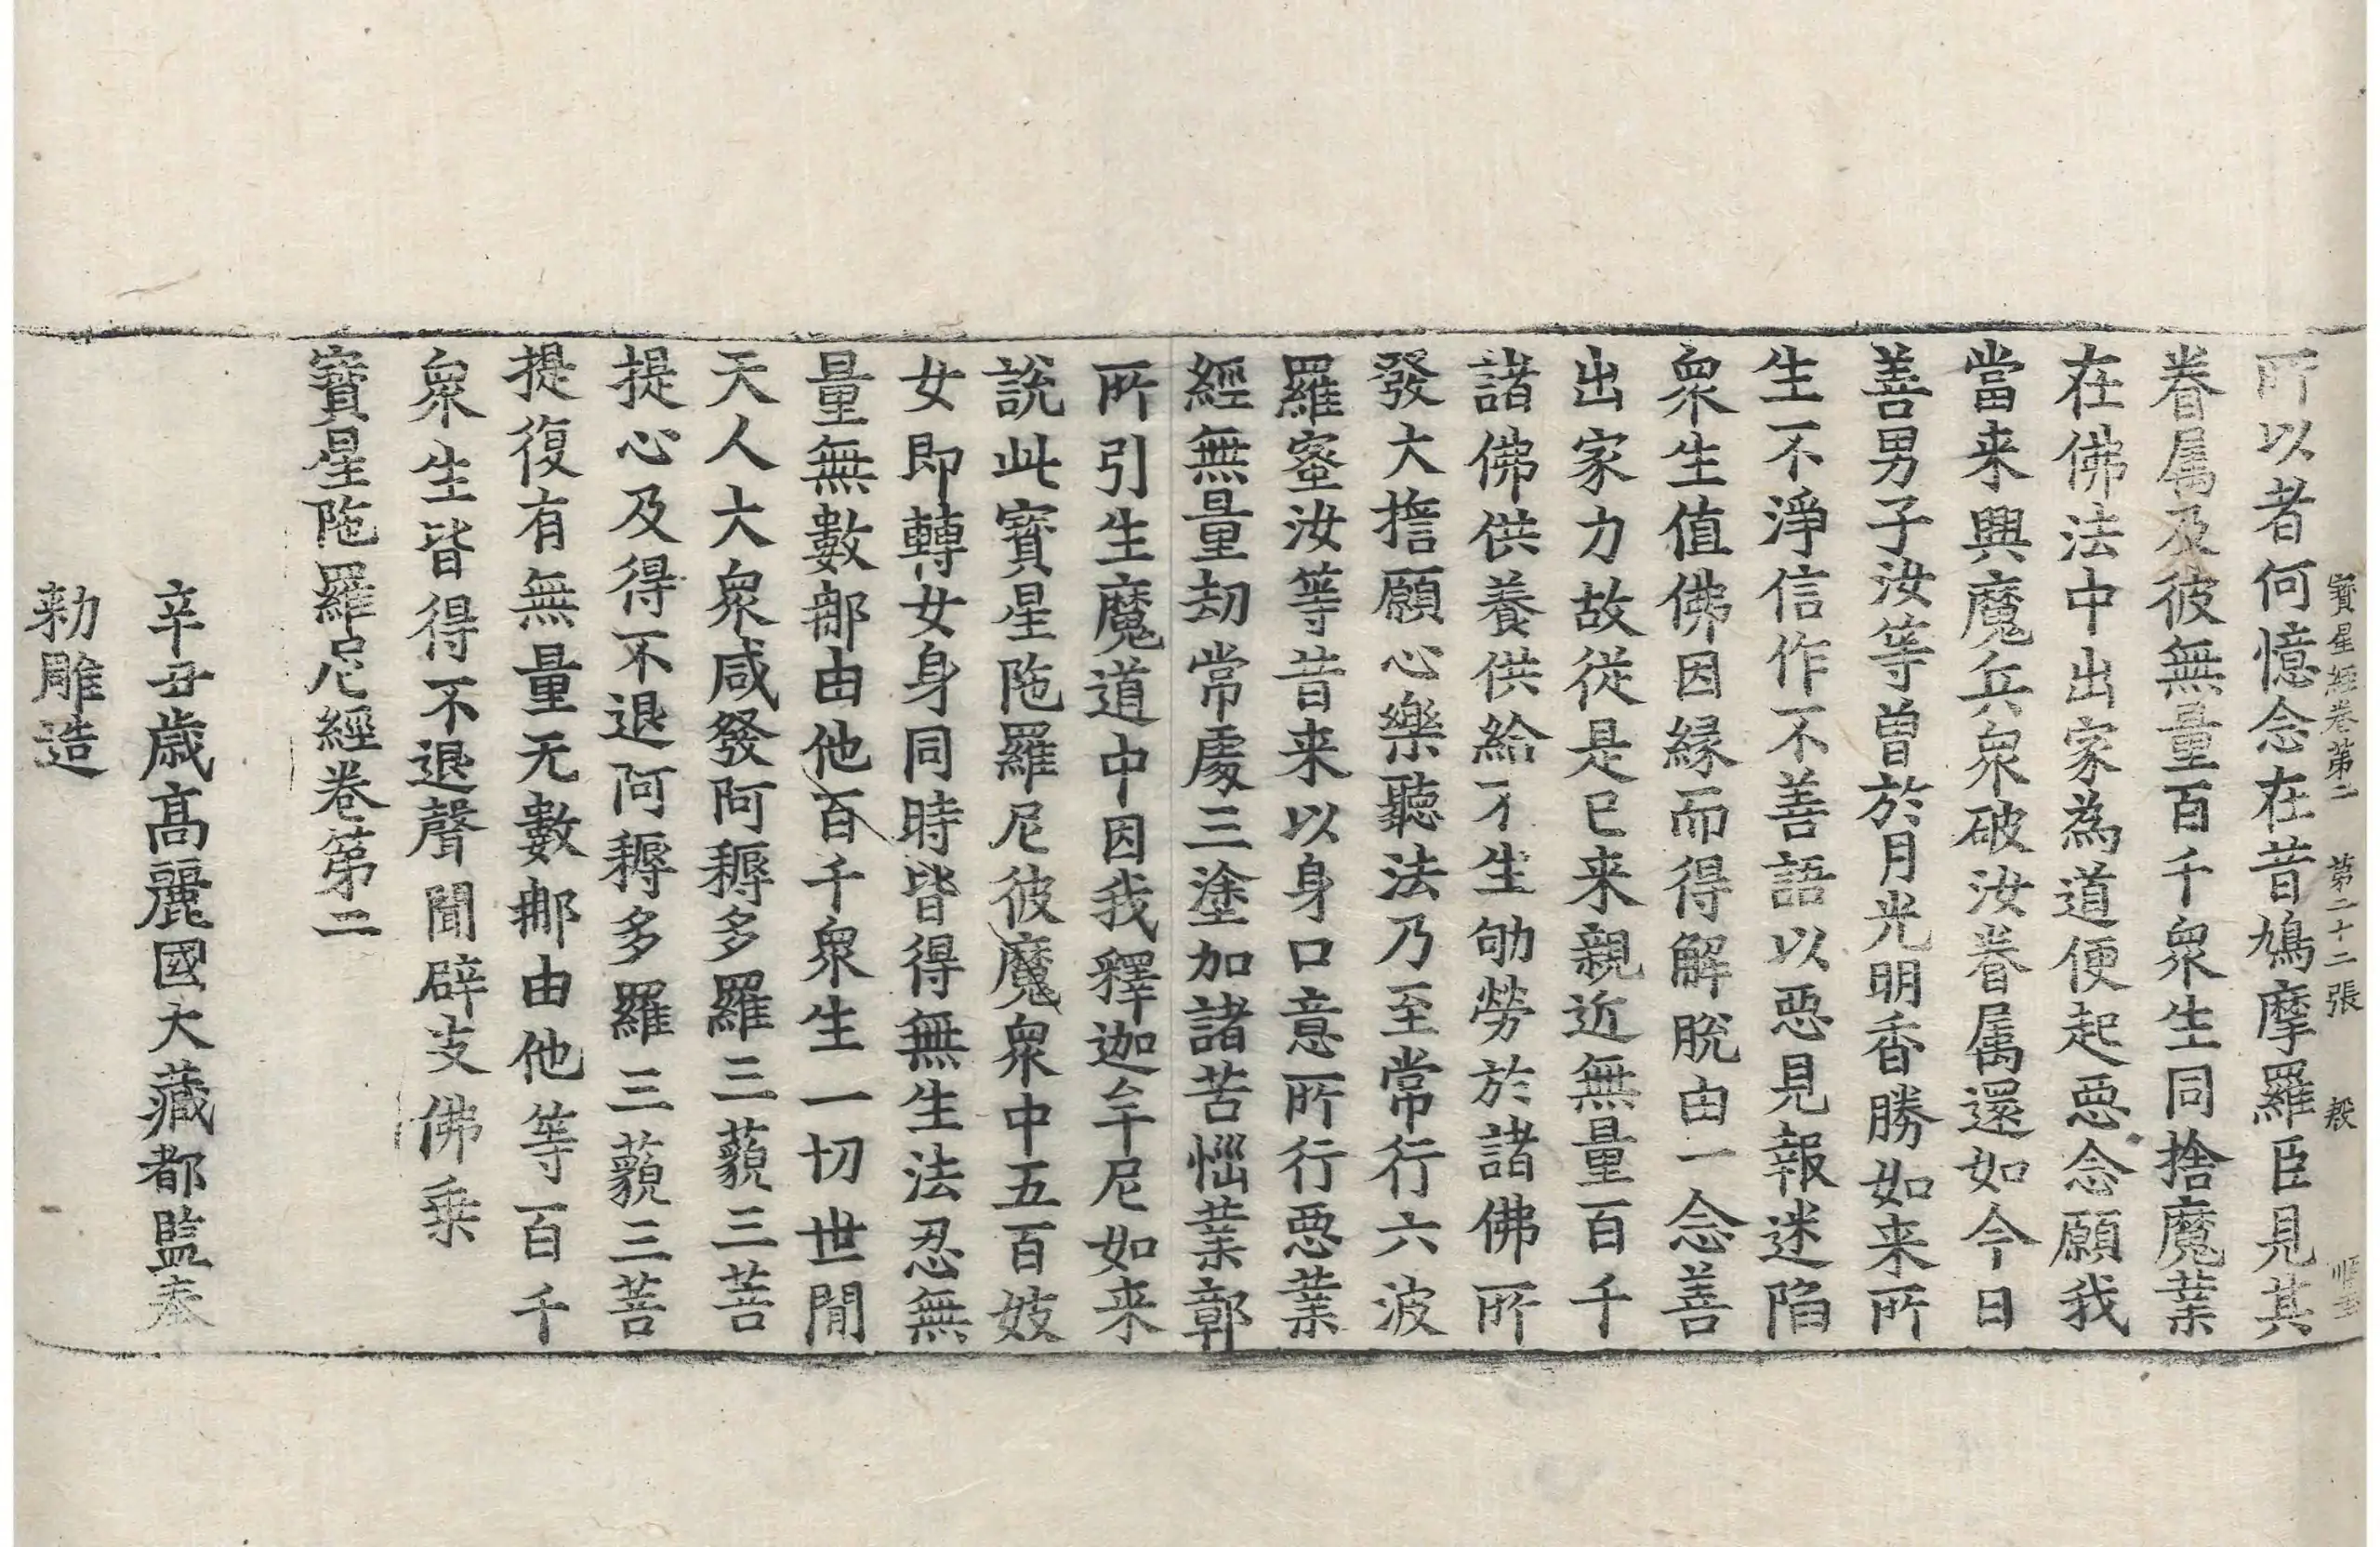 寶星經卷第二 第二十二張 殷
所以者何憶念在昔鳩摩羅臣見其
眷属及彼無量百千衆生同捨魔業
在佛法中出家為道便起惡念願我
當来興魔兵衆破汝眷属還如今日
善男子汝等曾於月光明香勝如来所
生不淨信作不善語以惡見報迷陷
衆生值佛因縁而得解脫由一念善
出家力故從是已来親近無量百千
諸佛供養供給不生劬勞於諸佛所
發大誓願心樂聽法乃至常行六波
羅蜜汝等昔来以身口意所行惡業
經無量劫常處三塗加諸苦惱業鄣
所引生魔道中因我釋迦牟尼如来
說此寶星陁羅尼彼魔衆中五百妓
女即轉女身同時皆得無生法忍無
量無數那由他百千衆生一切世閒
天人大衆咸發阿耨多羅三藐三菩
提心及得不退阿耨多羅三藐三菩
提復有無量无數那由他等百千
衆生皆得不退聲聞辟支佛乗
寶星陁羅尼經卷第二
辛丑歲高麗國大藏都監奉
勅雕造